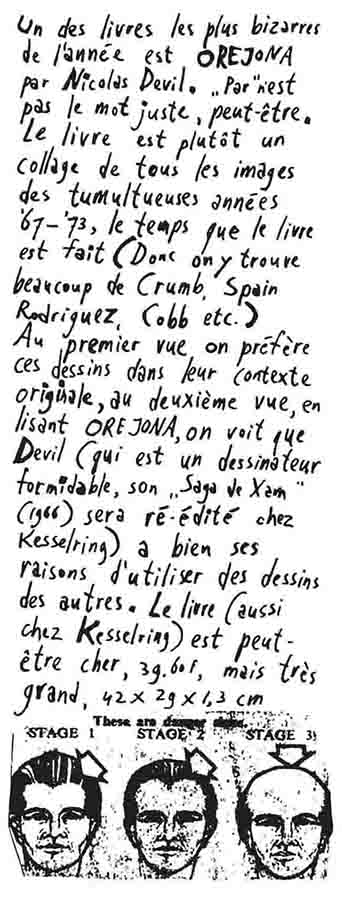 Un des livres les plus bizarres
de l'année est OREJONA
par Nicolas Devil. „Par" n'est
pas le mot juste, peut-être.
Le livre est plutôt un
collage de tous les images
des tumultueuses années
'67-'73, le temps que le livre
est fait (Donc on y trouve
beaucoup de Crumb, Spain
Rodriguez, Cobb etc.)
Au premier vue on préfère
ces dessins dans leur contexte
originale, au deuxième vue, en
lisant OREJONA, on voit que
Devil (qui est un dessinateur
formidable, son „Saga de Xam"
(1966) sera ré-édité chez
Kesselring) a bien ses
raisons d'utiliser des dessins
des autres. Le livre (aussi
chez Kesselring) est peut-
être cher, 39.60f, mais très
grand, 42 x 29 x 1,3 cm
These are danger signs.
STAGE 1 STAGE 2 STAGE 3